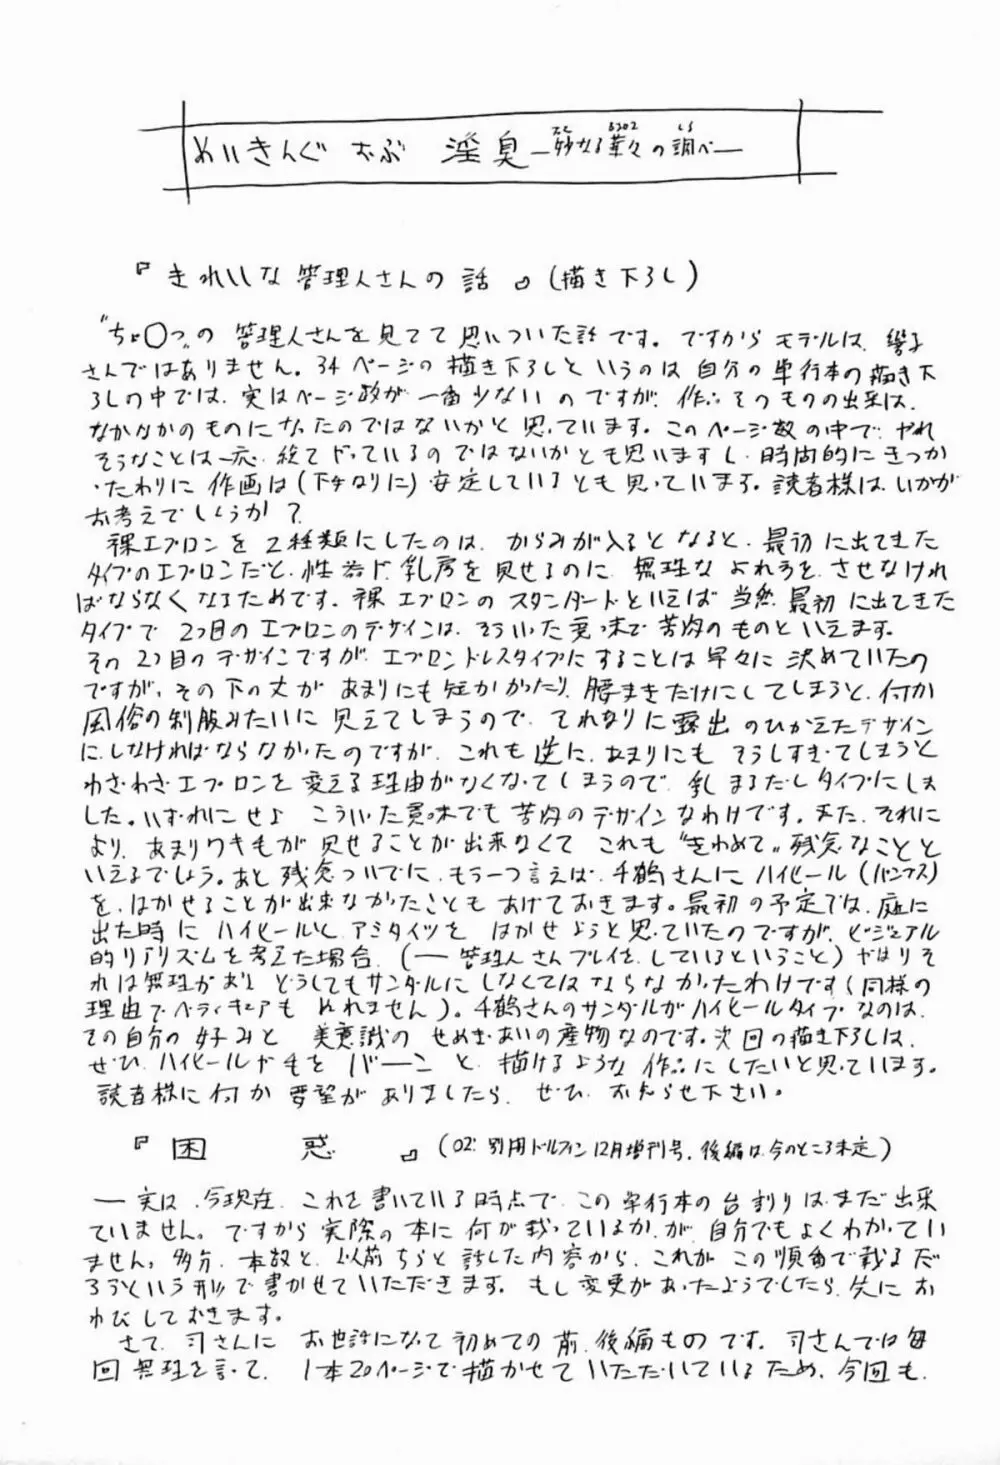 めいきんぐ おぶ 淫臭 ―妙なる華々の調べ―
『きれいな管理人さんの話』(描き下ろし)
"ちょ〇っ"の 管理人さんを見てて思いついた話です。ですからモデルは、響子
さんではありません。34ページの描き下ろしというのは自分の単行本の描き下
ろしの中では、実はページ数が一番少ないのですが、作品そのものの出来は、
なかなかのものになったのではないかと思っています。このページ数の中で、やれ
そうなことは一応、総てやっているのではないかとも思いますし、時間的にきつか
ったわりに作画は(下手なりに)安定しているとも思っています。読者様は、いかが
お考えでしょうか？
裸エプロンを2種類にしたのは、からみが入るとなると、最初に出てきた
タイプのエプロンだと、性器や、乳房を見せるのに、無理なよれ方を、させなけれ
ばならなくなるためです。裸エプロンのスタンダードといえば当然、最初に出てきた
タイプで2つ目のエプロンのデザインは、そういった意味で苦肉のものといえます。
その2つ目のデザインですが、エプロンドレスタイプにすることは早々に決めていたの
ですが、その下の丈があまりにも短かかったり、腰まきだけにしてしまうと、何か
風俗の制服みたいに見えてしまうので、それなりに露出のひかえたデザイン
に、しなければならなかったのですが、これも逆に、あまりにもそうしすぎてしまうと
わざわざエプロンを変える理由がなくなってしまうので、乳まるだしタイプにしま
した。いずれにせよ こういった意味でも苦肉のデザインなわけです。また、それに
より、あまりワキ毛が見せることが出来なくて これも"きわめて"残念なことと
いえるでしょう。あと残念ついでに、もう一つ言えば、千鶴さんにハイヒール(パンプス)
を、はかせることが出来なかったこともあげておきます。最初の予定では、庭に
出た時にハイヒールと、アミタイツをはかせようと思っていたのですが、ビジュアル
的リアリズムを考えた場合、(―管理人さんプレイを、しているということ)やはりそ
れは無理があり どうしてもサンダルにしなくてはならなかったわけです(同様の
理由でペディキュアもぬれません)。千鶴さんのサンダルがハイヒールタイプなのは、
その自分の好みと 美意識のせめぎあいの産物なのです。次回の描き下ろしは、
ぜひ、ハイヒールや毛をバーーンと、描けるような作品にしたいと思っています。
読者様に何か要望がありましたら、ぜひ、お知らせ下さい。
『困惑』(02'.別冊ドルフィン12月増刊号、後編は今のところ未定)
―実は、今現在、これを書いている時点で、この単行本の台割りは、まだ出来
ていません。ですから実際の本に何が載っているか、が、自分でもよくわかってい
ません。多分、本数と、以前ちらと話した内容から、これが、この順番で載るだ
ろうという形で書かせていただきます。もし変更があったようでしたら、先にお
わびしておきます。
さて、司さんに お世話になって初めての前、後編ものです。司さんでは毎
回無理を言って、1本20ページで描かせていただいているため、今回も、